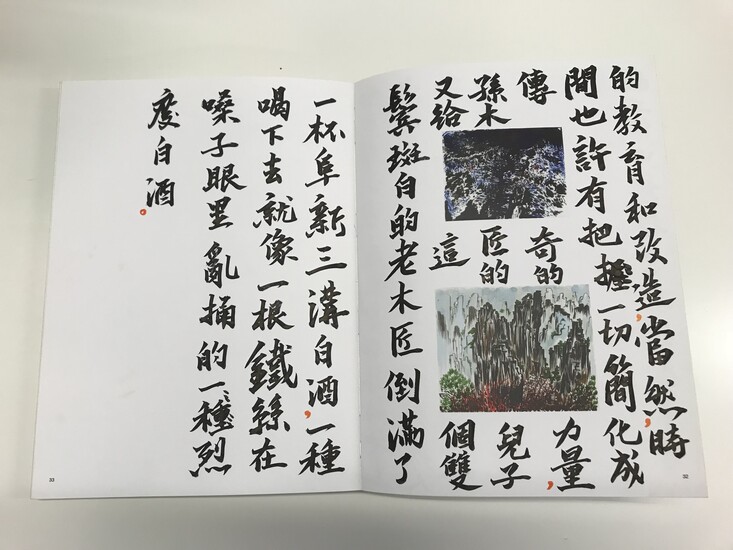 的教育和改造，當然，時
間也許有把握一切簡化成
傳奇的力量，
孫木匠的兒子
又給這個雙
鬢斑白的老木匠倒滿了
一杯阜新三溝白酒，一種
喝下去就像一根鐵絲在
嗓子眼里亂捅的一種烈
度白酒。